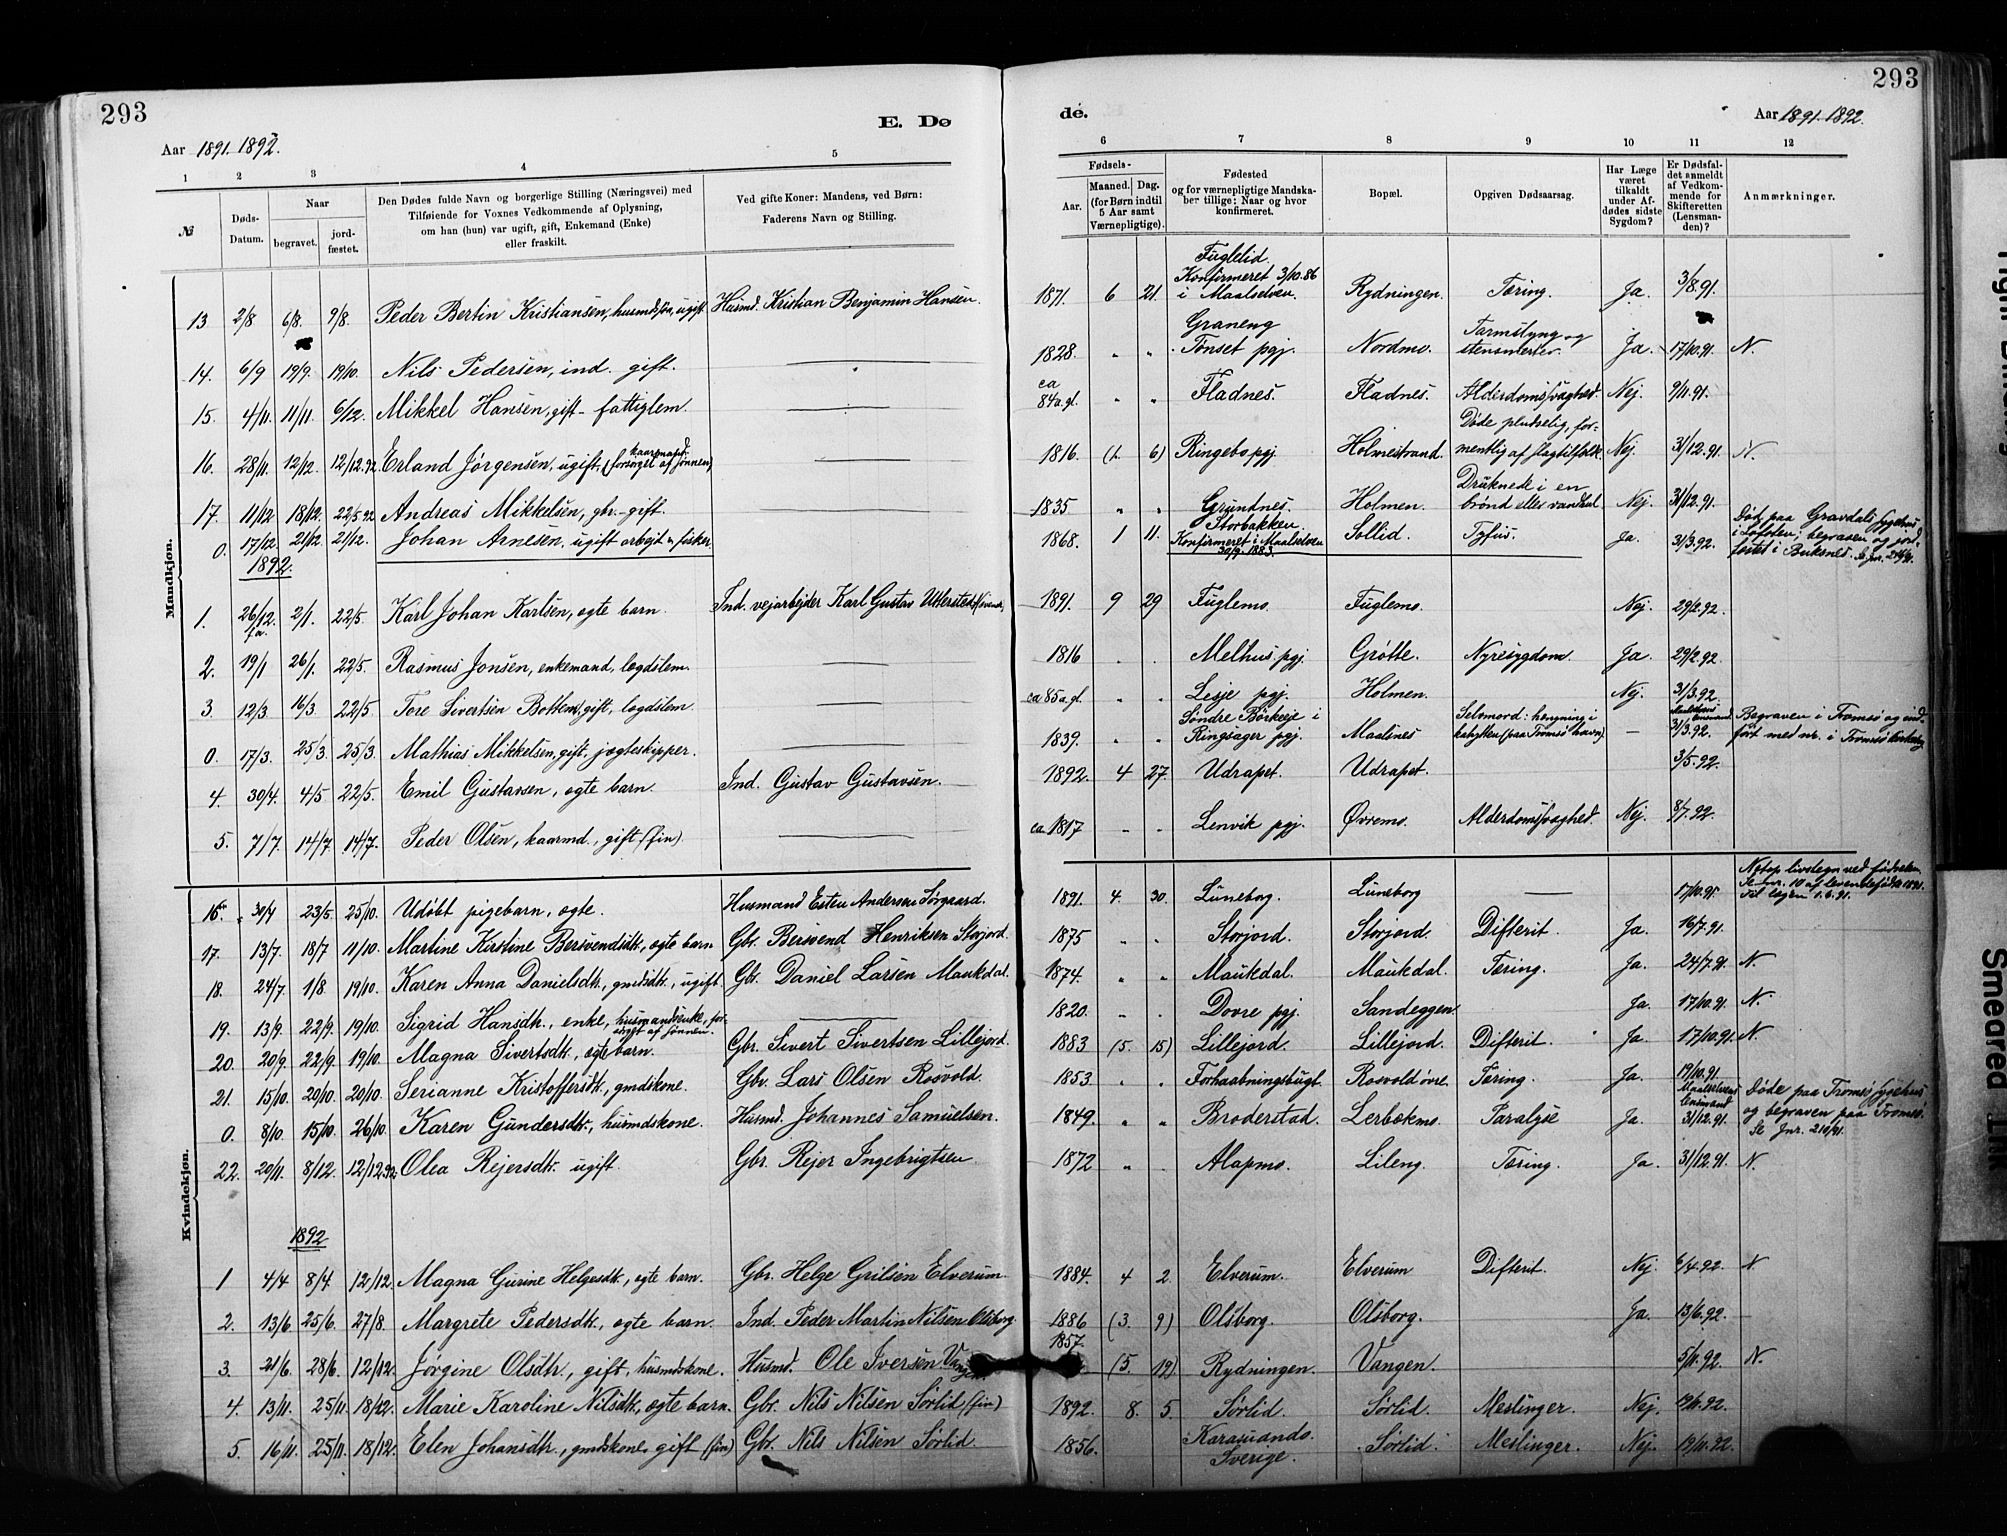 293
293
E. Dø
de.
Aar 1891. 1892.
Aar 1891. 1892.
1 2 3 4 5 6 7 8 9 10 11 12
№
Døds-Datum.
Naar
begravet.
jord-fæstet.
Den Dødes fulde Navn og borgerlige Stilling (Næringsvei) med
Tilføiende for Voxnes Vedkommende af Oplysning,
om han (hun) var ugift, gift, Enkemand (Enke)
eller fraskilt.
Ved gifte Koner: Mandens, ved Børn:
Faderens Navn og Stilling.
Fødsels-
Aar.
Maaned. Dag.
(for Børn indtil
5 Aar samt
Værnepligtige).
Fødested
og for værnepligtige Mandska-
ber tillige: Naar og hvor
konfirmeret.
Bopæl.
Opgiven Dødsaarsag.
Har Læge
været
tilkaldt
under Af-
dødes sidste
Sygdom?
Er Dødsfal-
det anmeldt
af Vedkom-
mende for
Skifteretten
(Lensman-
den)?
Anmærkninger.
Mandkjøn.
13 2/8 6/8. 9/8. Peder Bertin Kristiansen, husmdssøn, ugift Husmd. Kristian Benjamin Hansen. 1871. 6 21. Fuglelid. Konfirmeret 3/10.86 i Maalselven. Rydningen. Tæring. Ja. 3/8.91.
14. 6/9 19/9. 19/10. Nils Pedersen, ind. gift. — 1828. " " Graneng Tønset pgj. Nordmo. Tarmslyng og stensmerter. Ja. 17/10.91. N.
15. 4/11. 11/11. 6/12. Mikkel Hansen, gift - fattiglem. — ca 84 a. gl. " " Fladnes. Fladnes. Alderdomssvaghed. Nej. 9/11.91.
16. 28/11. 12/12. 12/12.92 Erland Jørgensen, ugift, kaarmand (forsørget af sønnen) — 1816. 6) Ringebo pgj. Holmestrand. Døde pludselig, formentlig af slagtilfælde. Nej. 31/12.91. N.
17. 11/12 18/12. 22/5 92 Andreas Mikkelsen, gbr. - gift. — 1835 " " Grundnes. Holmen. Druknede i en brønd eller vandhul. Nej. 31/12.91.
0. 17/12. 21/12 21/12. Johan Arnesen, ugift arbejd. & fisker. 1868. 1 11. Storbakken. Konfirmeret i Maalselven 30/9 1883. Sollid. Tyfus. Ja. 31/3.92. Døde paa Gravdals sygehus i Lofoten; begraven og jordfæstet i Buksnes.
1892.
1. 26/12 f.a. 2/1. 22/5. Karl Johan Karlsen, ægte barn. Ind. vejarbejder Karl Gustav 1891. 9 29 Fuglemo. Fuglemo. Nej. 29/2.92.
2. 19/1 26/1. 22/5. Rasmus Jonsen, enkemand, lægdslem. — 1816 Melhus pgj. Grøtte. Nyresygdom. Ja. 29/2.92.
3. 12/3. 16/3. 22/5 Tore Sivertsen Bottem, gift, lægdslem. — ca 85 a. gl. " " Lesje pgj. Holmen. Nej. 31/3.92
0. 17/3. 25/3. 25/3. Mathias Mikkelsen, gift, jægteskipper. — 1839. " " Søndre Børkeeje i Ringsager pgj. Maalsnes Selvmord: hængning i kahytten (paa Tromsø havn). — 31/3.92. Begraven i Tromsø og indført med nr. i Tromsø kirkebog
4. 30/4. 4/5. 22/5. Emil Gustavsen, ægte barn. Ind. Gustav Gustavsen. 1892. 4 27. Udrapet. Udrapet. 3/5.92.
5. 7/7. 14/7. 14/7. Peder Olsen, kaarmd., gift (fin) — ca 1817 " " Lenvik pgj. Øvremo. Alderdomssvaghed. Nej. 8/7.92.
Kvindekjøn.
16. 30/4 23/5. 25/10. Udøbt pigebarn, ægte. Husmand Esten Andersen Sørgaard. 1891. 4. 30. Luneborg. Luneborg — 17/10.91. Netop livstegn ved fødselen. Se nr. 10 af levendefødte 1891.
17. 13/7. 18/7 11/10. Martine Kirstine Bersvendsdtr., ægte barn Gbr. Bersvend Henriksen Storjord. 1875 " " Storjord. Storjord. Difterit. Ja. 16/7.91.
18. 24/7. 1/8. 19/10. Karen Anna Danielsdtr., gmdsdtr., ugift. Gbr. Daniel Larsen Maukdal. 1874. " " Maukdal. Maukdal. Tæring. Ja. 24/7.91. N
19. 13/9. 22/9. 19/10. Sigrid Hansdtr., enke, husmandsenke, forsørget af sønnen. — 1820. Dovre pgj. Sandeggen Ja. 17/10.91. N.
20. 20/9. 22/9. 19/10. Magna Sivertsdtr., ægte barn. Gbr. Sivert Sivertsen Lillejord. 1883 (5. 15) Lillejord. Lillejord. Difterit. Ja. 17/10.91. N.
21. 15/10. 20/10. 20/10. Serianne Kristoffersdtr., gmdskone. Gbr. Lars Olsen Rosvold 1853. " " Forhaabningsbugt. Rosvold øvre. Tæring. Ja. 19/10.91.
0. 8/10. 15/10. 26/10. Karen Gundersdtr., husmdskone. Husmd. Johannes Samuelsen. 1849. " " Broderstad. Lerbækmo. Paralyse Ja. 31/12.91. Døde paa Tromsø sygehus og begraven paa Tromsø. Se Jnr. 210/91.
22. 20/11. 8/12. 12/12.92. Olea Rejersdtr. ugift. Gbr. Rejer Ingebrigtsen 1872 " Alapmo. Lileng. Tæring. Ja. 31/12.91. N.
1892
1 4/4 8/4. 12/12. Magna Gurine Helgesdtr., ægte barn. Gbr. Helge Grilsen Elverum. 1884. 4 2. Elverum. Elverum Difterit. Nej. 6/4.92. N.
2. 13/6 25/6. 27/8. Margrete Pedersdtr., ægte barn. Ind. Peder Martin Nilsen Olsborg. 1886 (3. 9) Olsborg. Olsborg. Ja. 13/6.92.
3. 21/6. 28/6. 12/12. Jørgine Olsdtr., gift, husmdskone. Husmd. Ole Iversen Vangen. 1857. (5. 19) Rydningen. Vangen. 5/11.92. N.
4. 13/11. 25/11. 18/12. Marie Karoline Nilsdtr., ægte barn. Gbr. Nils Nilsen Sørlid (fin) 1892. 8. 5. Sørlid. Sørlid. Meslinger. Nej. 19/11.92.
5. 16/11. 25/11. 18/12. Elen Johansdtr., gmdskone, gift (fin) Gbr. Nils Nilsen Sørlid. 1856. Karasuando. Sverige. Sørlid. Meslinger. Nej. 19/11.92.
Smeared Ink